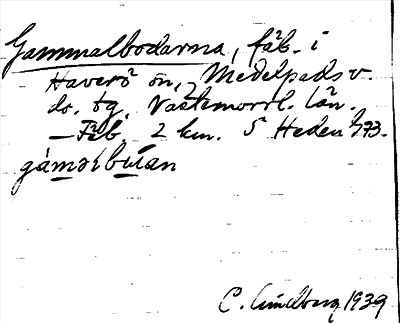 Gammalbodarna, fäb. i
Haverö sn, Medelpads v.
do. tg. Västernorrl. län.
— Fäb. 2 km. S Heden 
gámәlbùan
C. Lindberg 1939